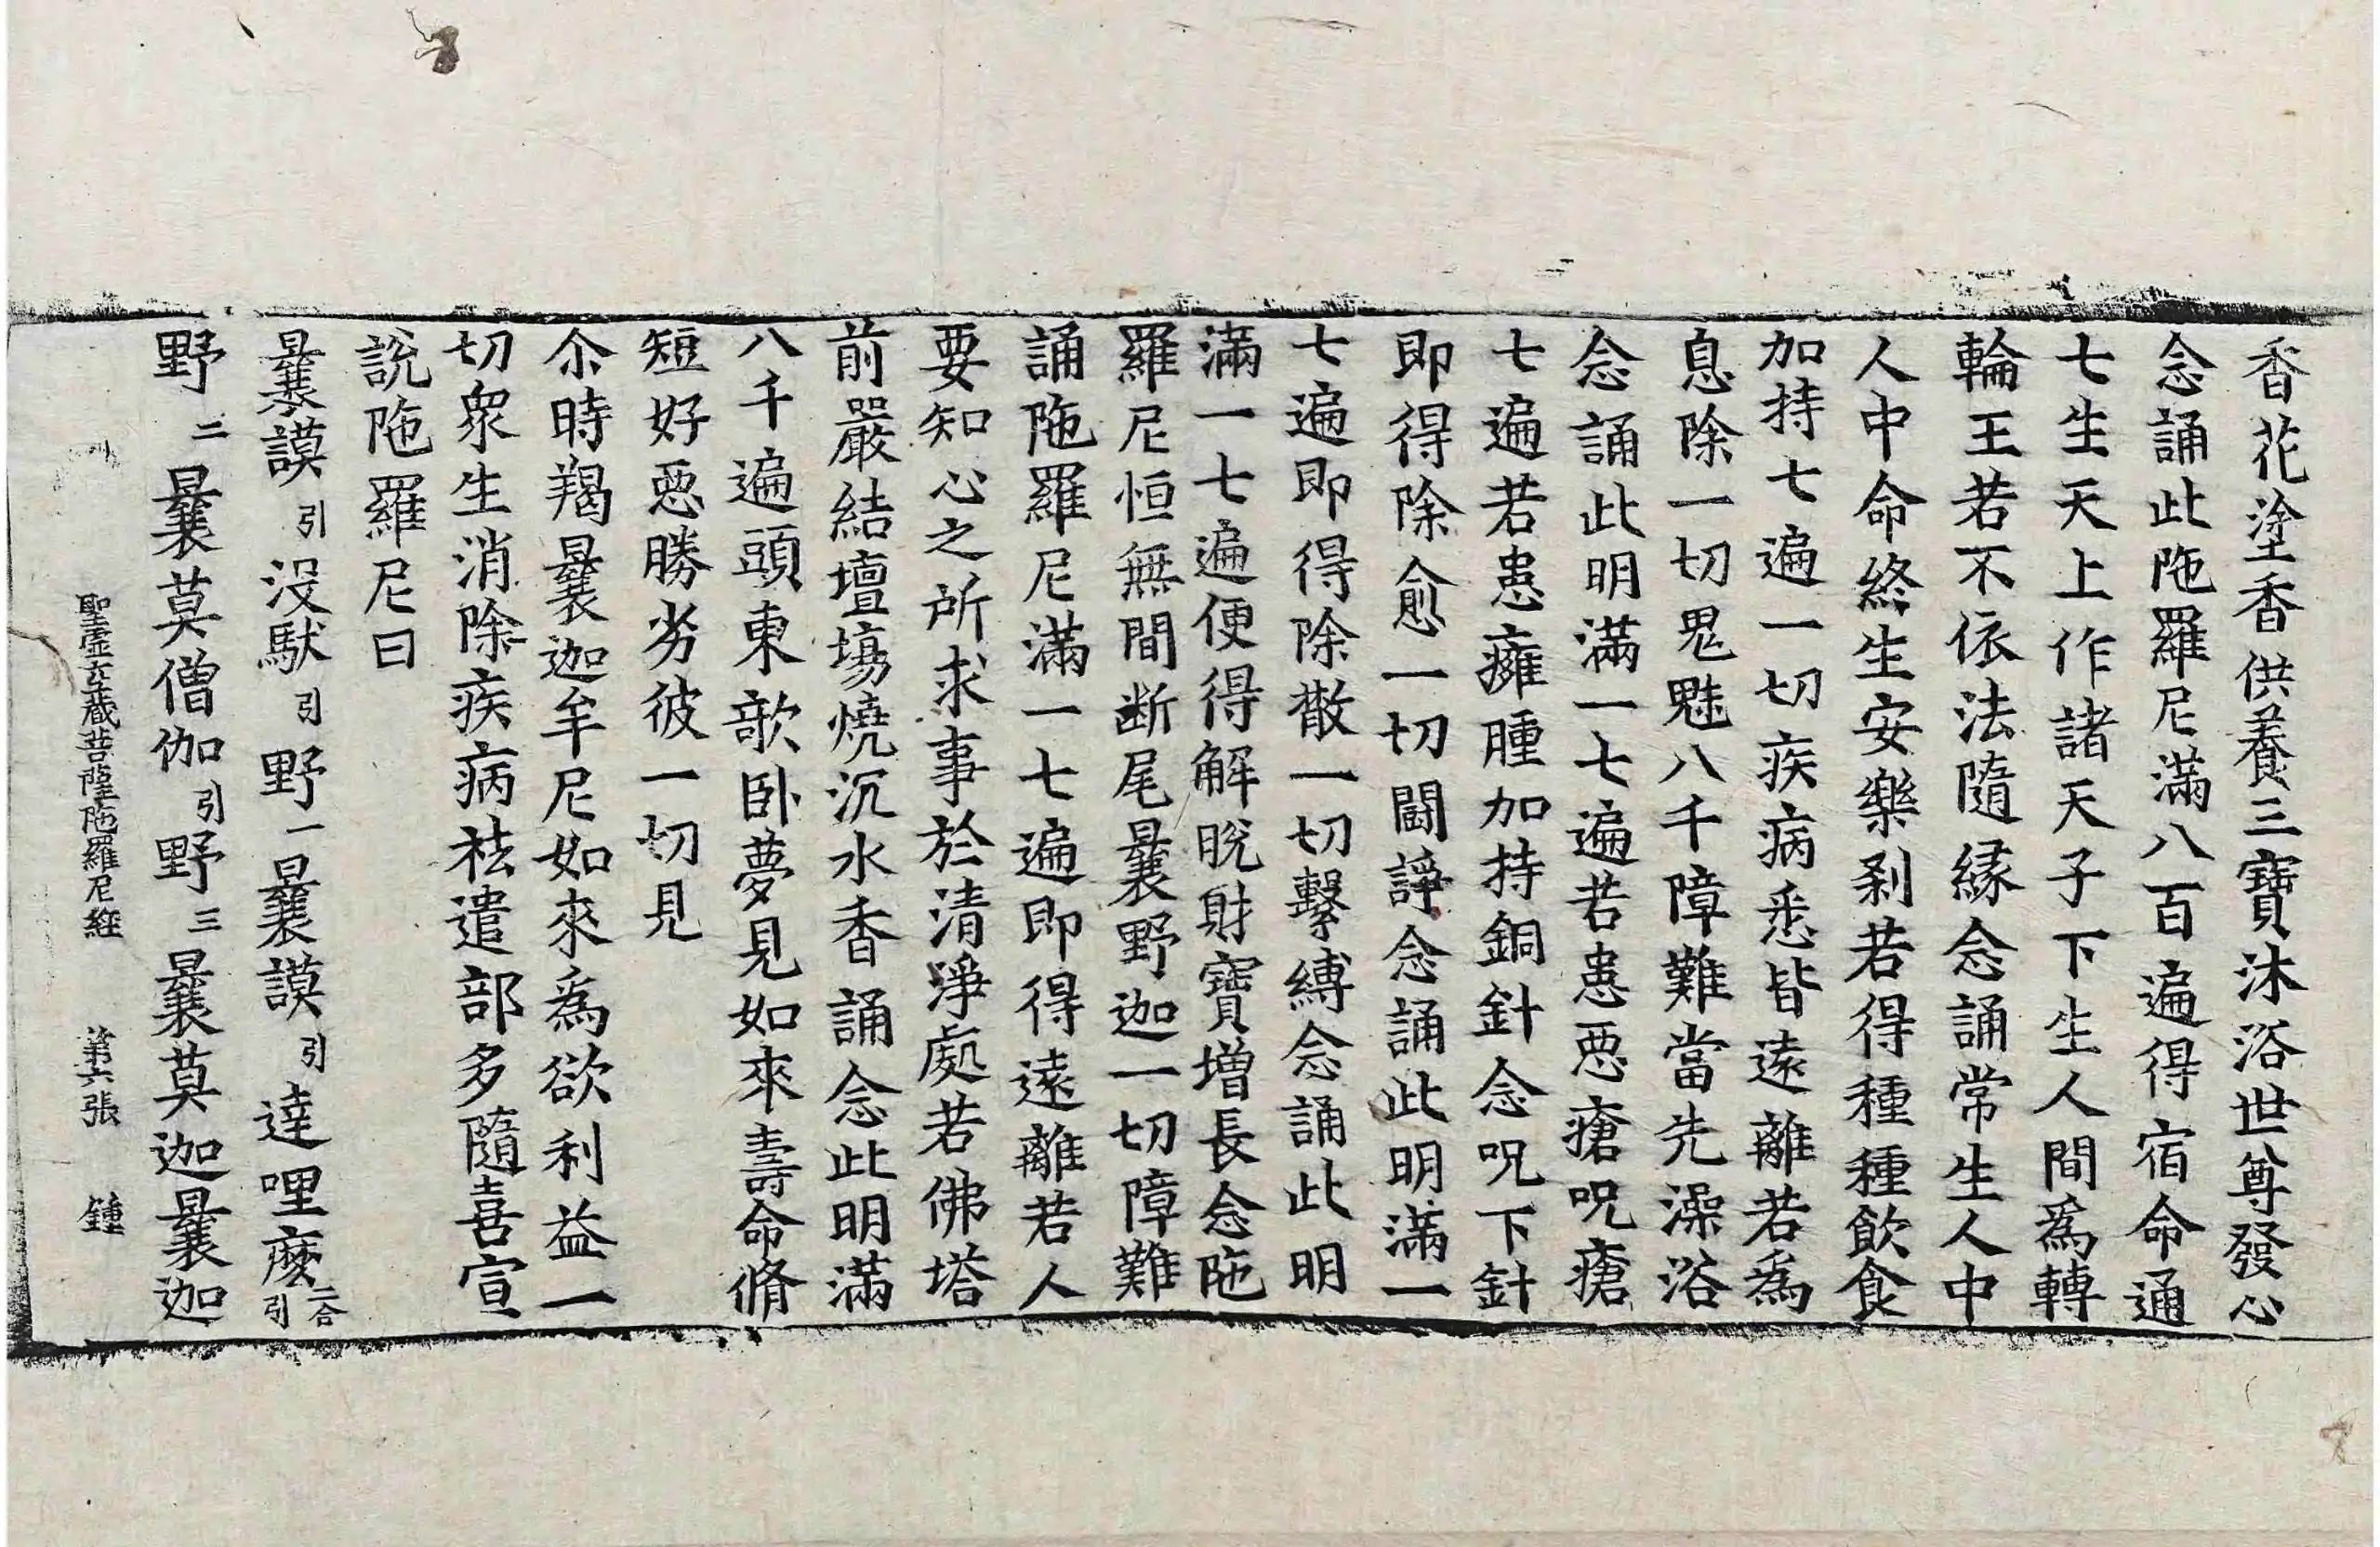 香花塗香供養三寶沐浴世尊發心
念誦此陁羅尼滿八百遍得宿命通
七生天上作諸天子下生人間爲轉
輪王若不依法隨緣念誦常生人中
人中命終生安樂刹若得種種飮食
加持七遍一切疾病悉皆遠離若爲
息除一切鬼魅八千障難當先澡浴
念誦此明滿一七遍若患惡瘡呪瘡
七遍若患癰腫加持銅針念呪下針
即得除愈一切鬪諍念誦此明滿一
七遍即得除散一切繫縛念誦此明
滿一七遍便得解脫財寶增長念陁
羅尼恒無間斷尾曩野迦一切障難
誦陁羅尼滿一七遍即得遠離若人
要知心之所求事於清淨處若佛塔
前嚴結壇場燒沉水香誦念此明滿
八千遍頭東歌卧夢見如來壽命脩
短好惡勝劣彼一切見
尒時羯曩迦牟尼如來爲欲利益一
切衆生消除疾病祛遣部多隨喜宣
說陁羅尼曰
曩謨引没馱引野一曩謨引達哩麼二合引
野二曩莫僧伽引野三曩莫迦曩迦
聖虛空藏菩薩陁羅尼經 第六張 鍾